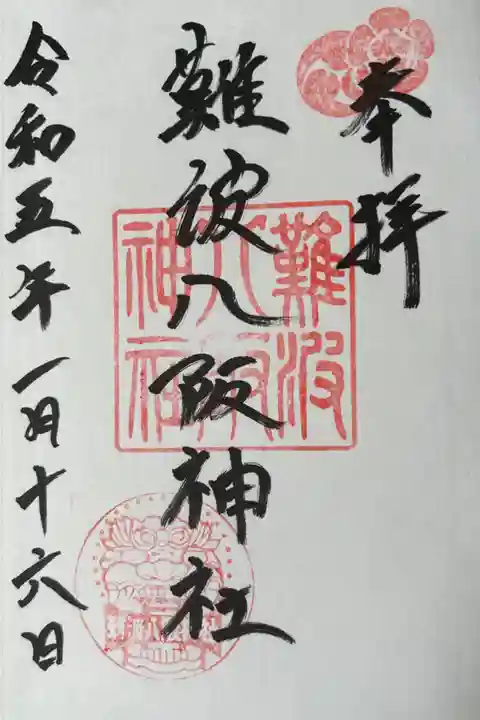 奉拝
難波八阪神社
令和五年一月十六日
難波
八阪
神社